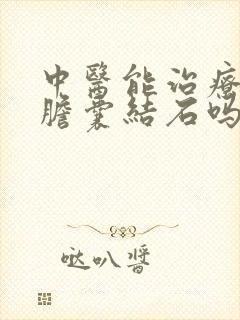 中醫能治療
膽囊結石嗎
哒叭醬